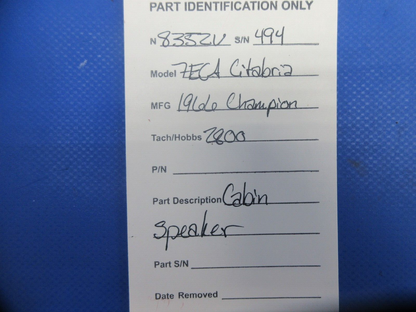 PART IDENTIFICATION ONLY
N 8352V S/N 494
Model 7ECA Citabria
MFG 1966 Champion
Tach/Hobbs 2800
P/N
Part Description Cabin
Speaker
Part S/N
Date Removed